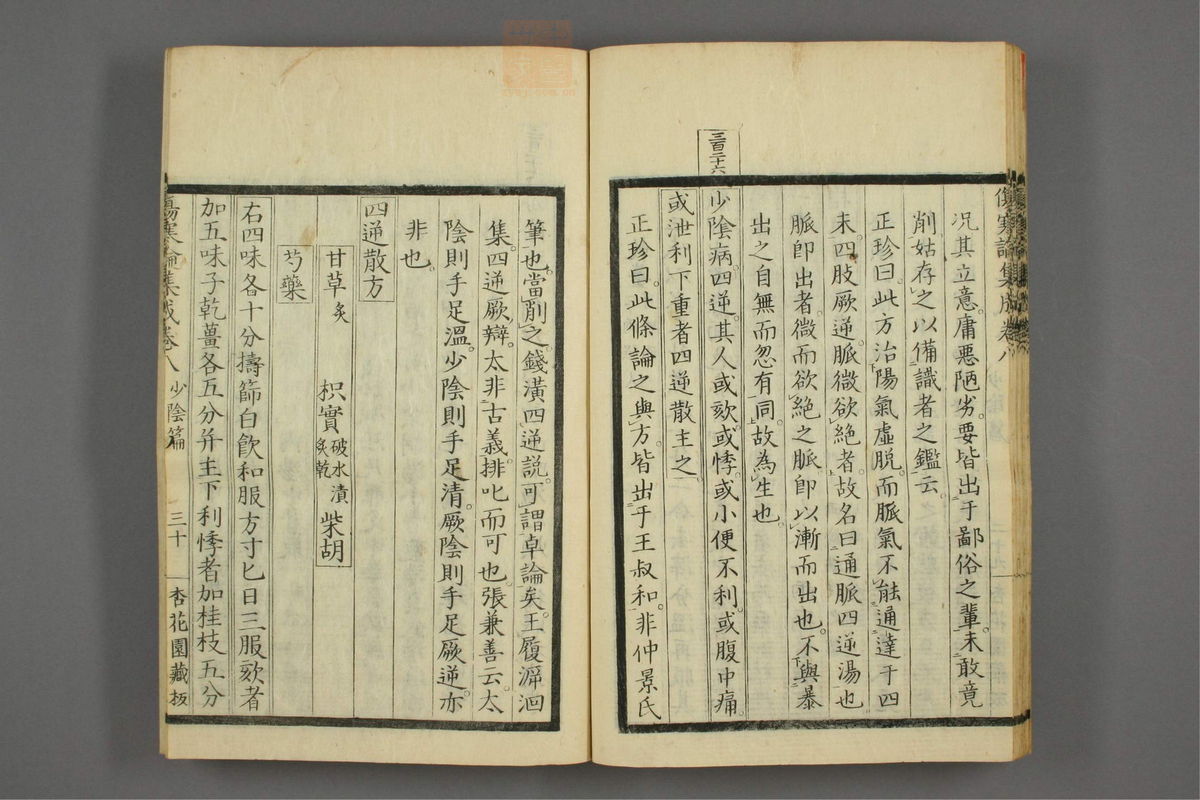 傷寒論集成卷八
況其立意。庸惡陋劣。要皆出于鄙俗之輩。未敢竟
削姑存之以備識者之鑑云。
正珍曰。此方治陽氣虛脫。而脈氣不能通達于四
末。四肢厥逆。脈微欲絕者。故名曰通脈四逆湯也
脈卽出者。微而欲絕之脈卽以漸而出也。不與暴
出之自無而忽有同。故為生也。
三百二十六
少陰病。四逆。其人或欬。或悸。或小便不利。或腹中痛。
或泄利下重者四逆散主之。
正珍曰。此條論之與方。皆出于王叔和。非仲景氏
筆也。當削之。錢潢四逆說。可謂卓論矣。王履溯洄
集。四逆厥辯。太非古義。排叱而可也。張兼善云。太
陰則手足溫。少陰則手足清。厥陰則手足厥逆。亦
非也。
四逆散方
甘草炙 枳實破水漬炙乾 柴胡
芍藥
右四味各十分擣篩白飮和服方寸匕日三服欬者
加五味子乾薑各五分并主下利悸者加桂枝五分
傷寒論集成卷八 少陰篇 三十 杏花園藏板